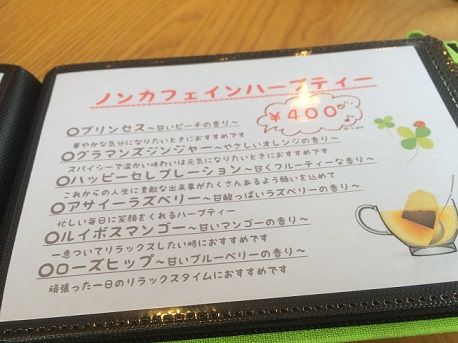 ノンカフェインハーブティー
¥400
○プリンセス～甘いピーチの香り～
華やかな気分になりたいときにおすすめです
○グラマンズジンジャー～やさしいオレンジの香り～
スパイシーで温かい味わいは元気になりたいときにおすすめです
○ハッピーセレブレーション～甘くフルーティーな香り～
これからの人生に素敵な出来事がたくさんあるよう願いを込めて
○アサイーラズベリー～甘酸っぱいラズベリーの香り～
忙しい毎日に笑顔をくれるハーブティー
○ルイボスマンゴー～甘いマンゴーの香り～
一息ついてリラックスしたい時におすすめです
○ローズヒップ～甘いブルーベリーの香り～
頑張った一日のリラックスタイムにおすすめです